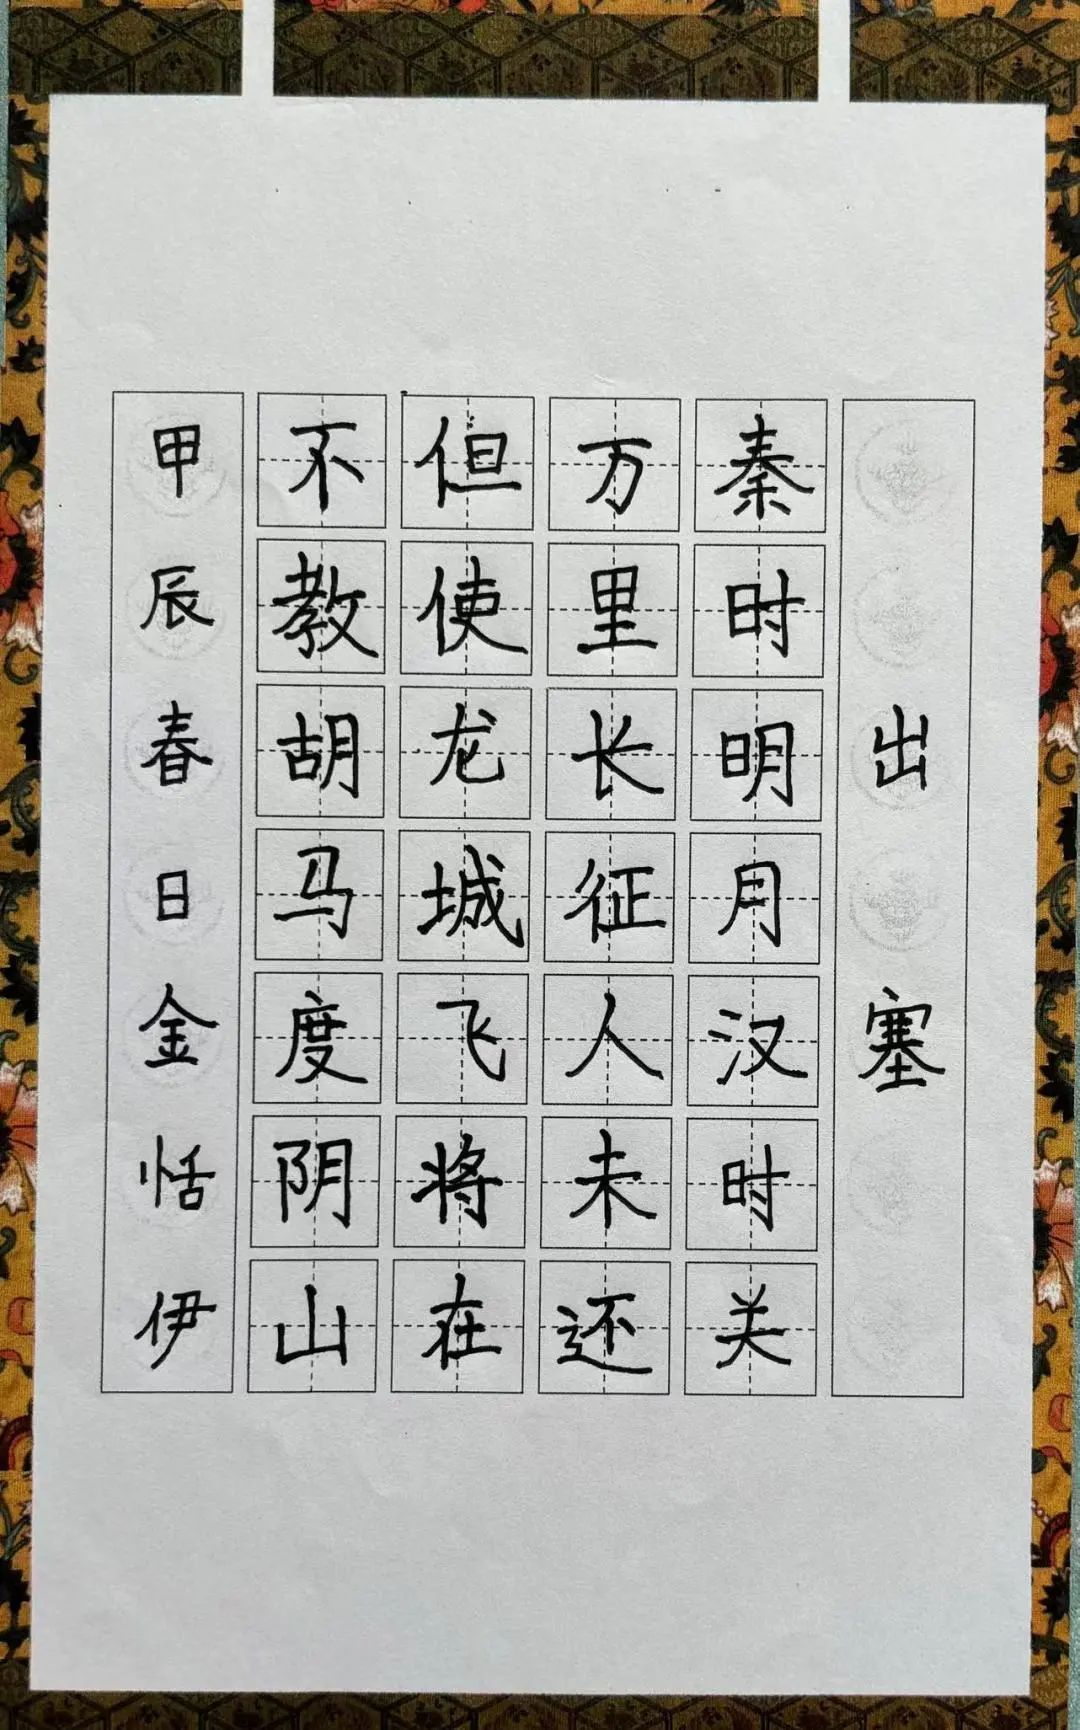 出塞
秦时明月汉时关
万里长征人未还
但使龙城飞将在
不教胡马度阴山
甲辰春日金恬伊